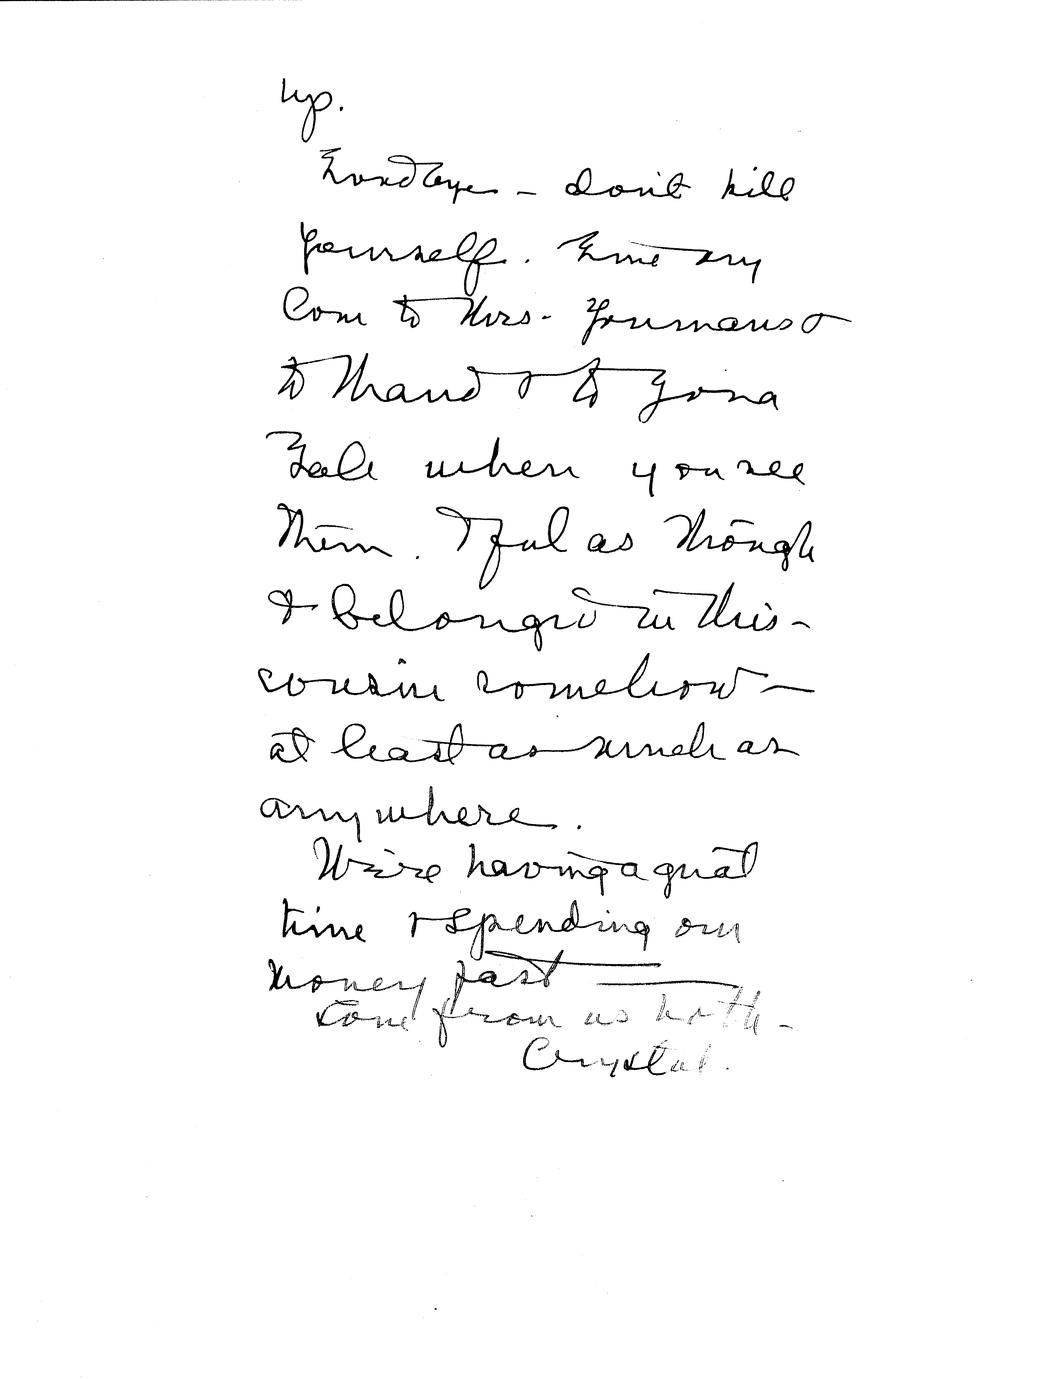 up.
Goodbye - don't kill
yourself. Give my
love to Mrs. Youmans &
to Maud & to Zona
Gale when you see
them. I feel as though
I belonged in Wis-
cousin somehow -
at least as much as
anywhere.
We're having a great
time & spending our
money fast
Love from us both -
Crystal.